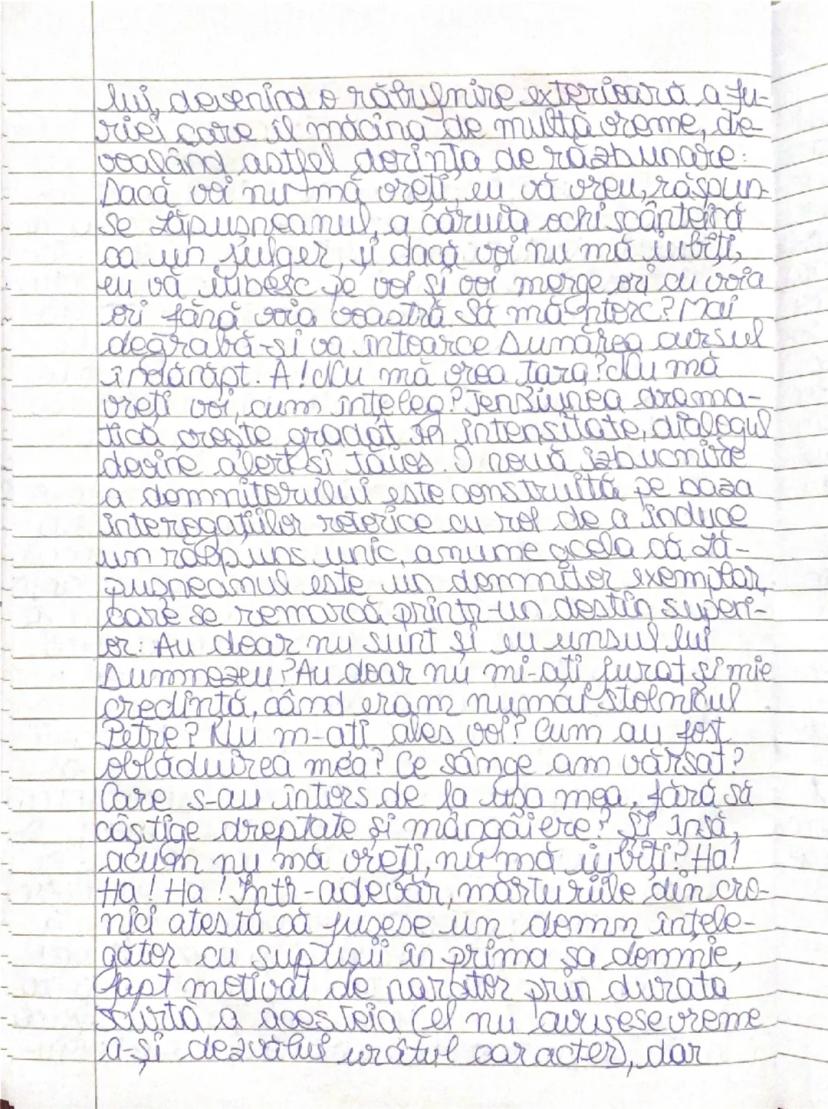 lui, devenind o răbufnire exterioară a fu-
riei care îl măcina de multă vreme, de-
voalând astfel dorința de răzbunare:
Dacă voi nu mă vreți, eu vă vreu, răspun-
se Lăpușneanul, a căruia ochi scânteiră
ca un fulger, și dacă voi nu mă iubiți,
eu vă iubesc pe voi și voi merge ori cu voia
ori fără voia voastră. Să mă ntorc? Mai
degrabă-și va întoarce Dunărea cursul
îndărăpt. A! Nu mă vrea țara? Nu mă
vreți voi, cum înțeleg? Tensiunea drama-
tică crește gradat în intensitate, dialogul
devine alert și tăios. O nouă izbucnire
a domnitorului este construită pe baza
interogațiilor retorice cu rol de a induce
un răspuns unic, anume acela că Lă-
pușneanul este un domnitor exemplar,
care se remarcă printr-un destin superi-
or: Au doar nu sunt și eu unsul lui
Dumnezeu? Au doar nu mi-ați jurat și mie
credință, când eram numai stolnicul
Petre? Nu m-ați ales voi? Cum au fost
oblăduirea mea? Ce sânge am vărsat?
Care s-au întors de la ușa mea, fără să
câștige dreptate și mângâiere? Și însă,
acum nu mă vreți, nu mă iubiți? Ha!
Ha! Ha! Într-adevăr, mărturiile din cro-
nici atestă că fusese un domn înțele-
gător cu supușii în prima sa domnie,
fapt motivat de narator prin durata
scurtă a acesteia (el nu avusese vreme
a-și dezvălui urâtul caracter), dar